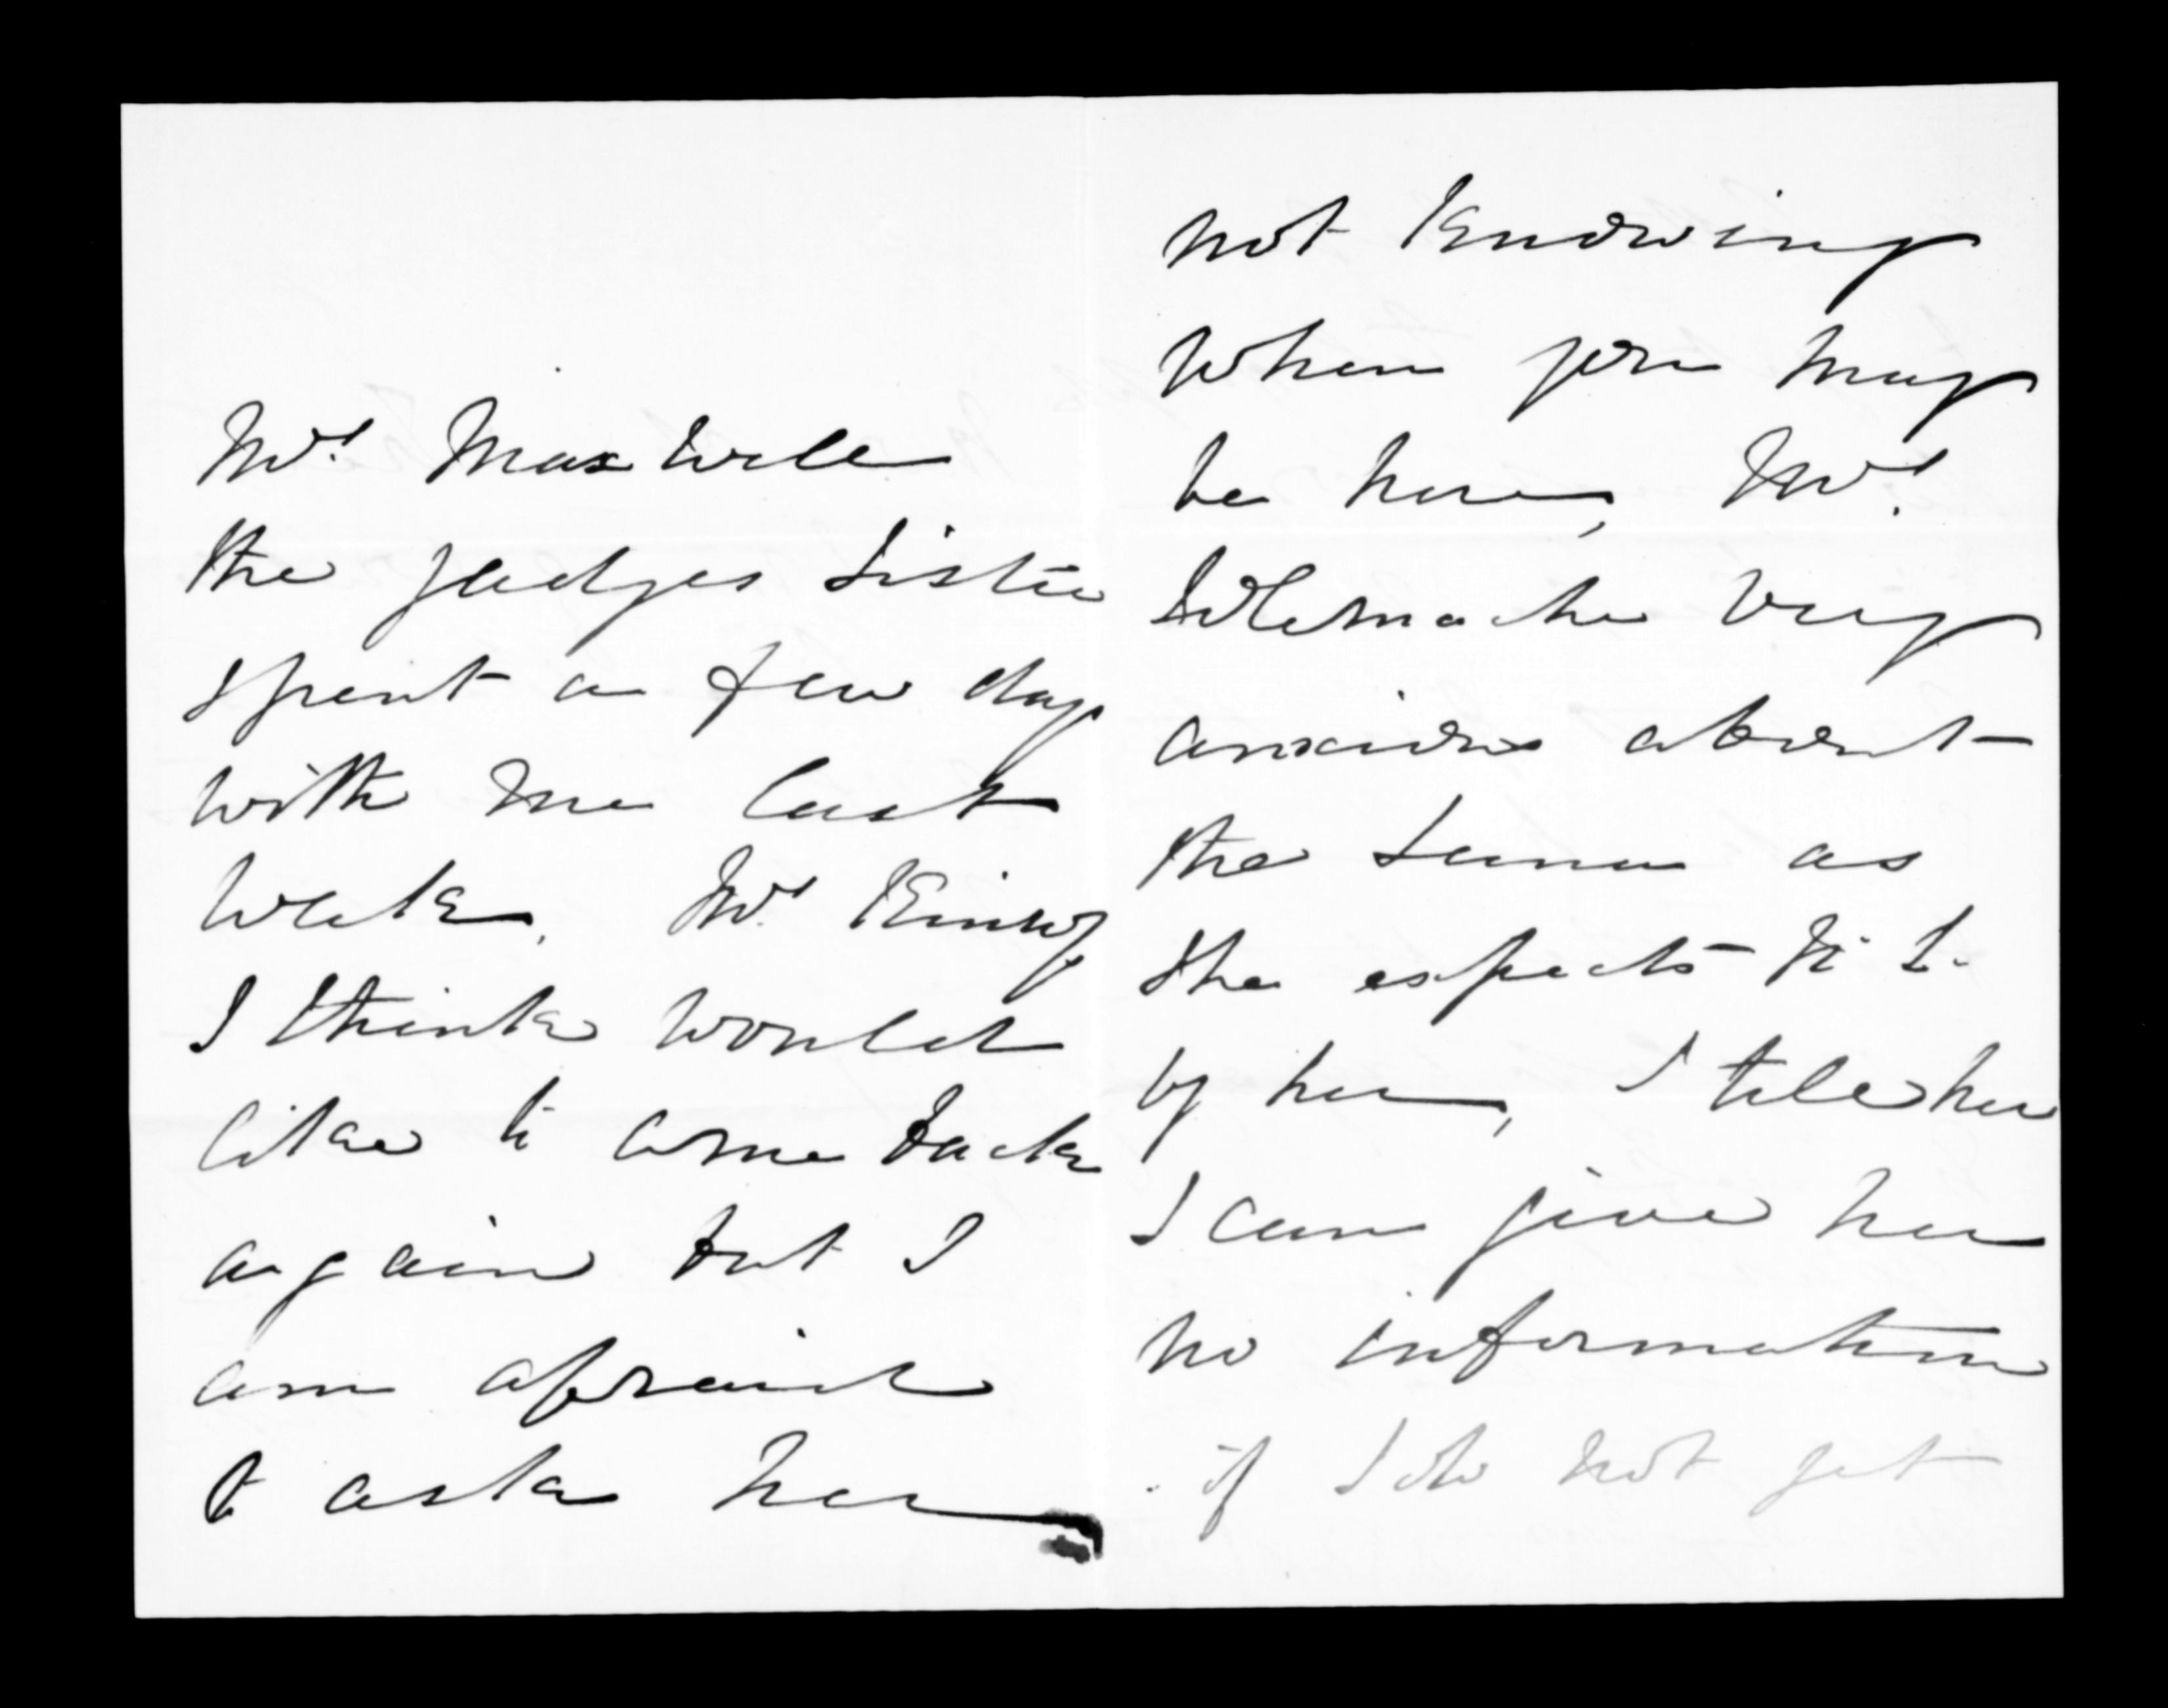 Mrs. Maxwell
the judges sister
spent a few days
with me last
week. Mrs. King
I think would
like to come back
again but I
am afraid
to ask her
not knowing
when you may
be here, Mrs.
Tolemache very
anxious about
the Luna as
she expects
by her, I tell her
I can give her
no information
if I do not get